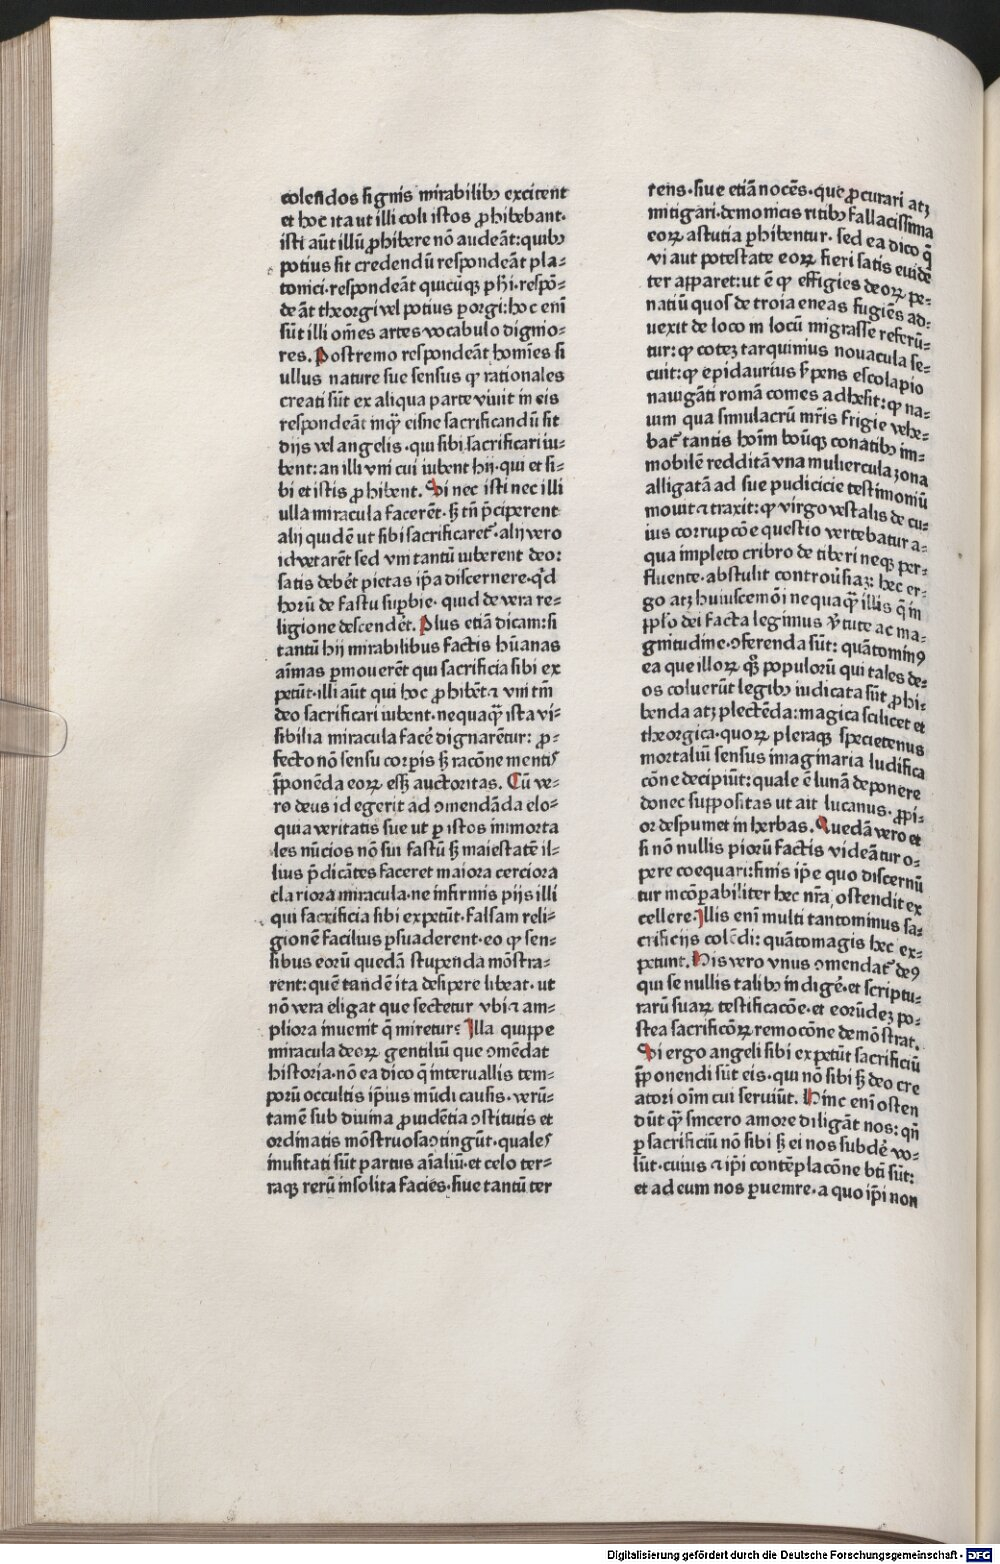 colendos signis mirabilibꝰ excitent
et hoc ita ut illi coli istos ꝓhibebant·
isti aūt illū ꝓhibere nō audeāt: quibꝰ
potius sit credendū respondeāt pla⸗
tonici·respondeāt quicūqꝫ pħi·respō⸗
deāt theorgi vel potius ꝑorgi: hoc enī
sūt illi om̄es artes vocabulo dignio⸗
res. Postremo respondeāt homīes si
ullus nature sue sensus ꝙ rationales
creati sūt ex aliqua parte viuit in eis
respondeāt inqͣ̄ eisne sacrificandū sit
dijs vel angelis·qui sibi sacrificari iu⸗
bent: an illi vni cui iubent hij·qui et si⸗
bi et istis ꝓhibent. Si nec isti nec illi
ulla miracula facerēt·sꝫ tn̄ p̄ciperent
alij quidē ut sibi sacrificaret᷑·alij vero
id vetarēt sed vni tantū iuberent deo:
satis debēt pietas ip̄a discernere·qͥd
horū de fastu suꝑbie·quid de vera re⸗
ligione descendēt. Plus etiā dicam: si
tantū hij mirabilibus factis hūanas
aīmas ꝑmouerēt qui sacrificia sibi ex
petūt·illi aūt qui hoc ꝓhibēt ⁊ vni tm̄
deo sacrificari iubent·nequaqͣ̄ ista vi⸗
sibilia miracula facē dignarētur: ꝓ⸗
fecto nō sensu corꝑis sꝫ racōne mentis
p̄ponēda eoꝝ esꝫ auctoritas. Cū ve⸗
ro deus id egerit ad ꝯmendāda elo⸗
quia veritatis sue ut ꝑ istos immorta
les nūcios nō sui fastū sꝫ maiestatē il⸗
lius p̄dicātes faceret maiora cerciora
clariora miracula·ne infirmis pijs illi
qui sacrificia sibi expetūt·falsam reli⸗
gionē facilius ꝑsuaderent·eo ꝙ sen⸗
sibus eorū quedā stupenda mōstra⸗
rent: quē tandē ita desipere libeat·ut
nō vera eligat que sectetur vbi ⁊ am⸗
pliora inuenit q̄ miretur: Illa quippe
miracula deoꝝ gentiliū que ꝯmēdat
historia·nō ea dico q̄ interuallis tem⸗
porū occultis ip̄ius mūdi causis·verū⸗
tamē sub diuina ꝓuidētia ꝯstitutis et
ordinatis mōstruosa ꝯtingūt·quales
inusitati sūt partus aīaliū·et celo ter⸗
raqꝫ rerū insolita facies·siue tantū ter
rens·siue etiā nocēs·que ꝓcurari atꝫ
mitigari·demonicis ritibꝰ fallacissima
eoꝝ astutia ꝑhibentur·sed ea dico q̄
vi aut potestate eoꝝ fieri satis euidē
ter apparet: ut ē ꝙ effigies deoꝝ pe⸗
natiū quos de troia eneas fugiēs ad⸗
uexit de loco in locū migrasse referū⸗
tur: ꝙ coteꝫ tarquinius nouacula se⸗
cuit: ꝙ epidaurius s̄pens escolapio
nauigāti romā comes adhesit: ꝙ na⸗
uim qua simulacrū mr̄is frigie vehe⸗
bat᷑ tantis hoīm boūqꝫ conatibꝰ im⸗
mobilē redditā vna muliercula zona
alligatā ad sue pudicicie testimoniū
mouit ⁊ traxit: ꝙ virgo vestalis de cu⸗
ius corrupcōe questio vertebatur a⸗
qua impleto cribro de tiberi neqꝫ per⸗
fluente·abstulit controūsiaꝫ: hec er⸗
go atꝫ huiuscemōi nequaqͣ̄ illis q̄ in
ppl̄o dei facta legimus v̄tute ac ma⸗
gnitudine·ꝯferenda sūt: quātominꝰ
ea que illoꝝ qꝫ̄ populorū qui tales de⸗
os coluerūt legibꝰ iudicata sūt ꝓhi⸗
benda atꝫ plectēda: magica scilicet et
theorgica·quoꝝ pleraqꝫ specietenus
mortaliū sensus imaginaria ludifica
cōne decipiūt: quale ē lunā deponere
donec suppositas ut ait lucanus·ꝓpi⸗
or despumet in herbas. Quedā vero et
si nō nullis piorū factis videātur o⸗
pere coequari: finis ip̄e quo discernū
tur incōꝑabiliter hec nr̄a ostendit ex
cellere·Illis enī multi tantominus sa⸗
crificijs colēdi: quātomagis hec ex⸗
petunt. His vero vnus ꝯmendat᷑ deꝰ
qui se nullis talibꝰ indigē·et scriptu⸗
rarū suaꝝ testificacōe·et eorūdeꝫ po⸗
stea sacrificōꝝ remocōne demōstrat.
Si ergo angeli sibi expetūt sacrificiū
p̄ponendi sūt eis·qui nō sibi sꝫ deo cre
atori oīm cui seruiūt. Hinc enī osten
dūt qͣ̄ sincero amore diligāt nos: qn̄
ꝑ sacrificiū nō sibi sꝫ ei nos subdē vo⸗
lūt·cuius ⁊ ip̄i contēplacōne bt̄i sūt:
et ad eum nos ꝑuenire·a quo ip̄i non
Digitalisierung gefördert durch die Deutsche Forschungsgemeinschaft - DFG